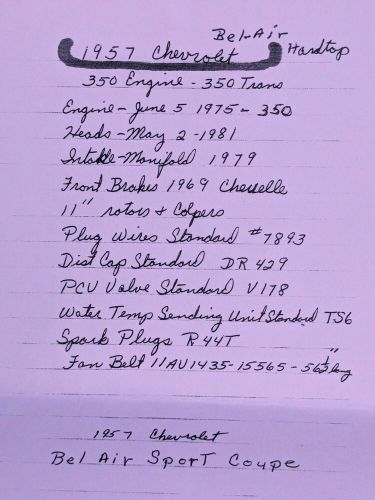 Bel-Air
1957 Chevrolet Hardtop
350 Engine - 350 Trans
Engine - June 5 1975 - 350
Heads - May 2 - 1981
Intake-Manifold 1979
Front Brakes 1969 Chevelle
11" rotors + Calpers
Plug Wires Standard #7893
Dist Cap Standard DR 429
PCV Valve Standard V178
Water Temp Sending Unit Standard TS6
Spark Plugs R44T
Fan Belt 11AV1435-15565 - 56½" long
1957 Chevrolet
Bel Air Sport Coupe